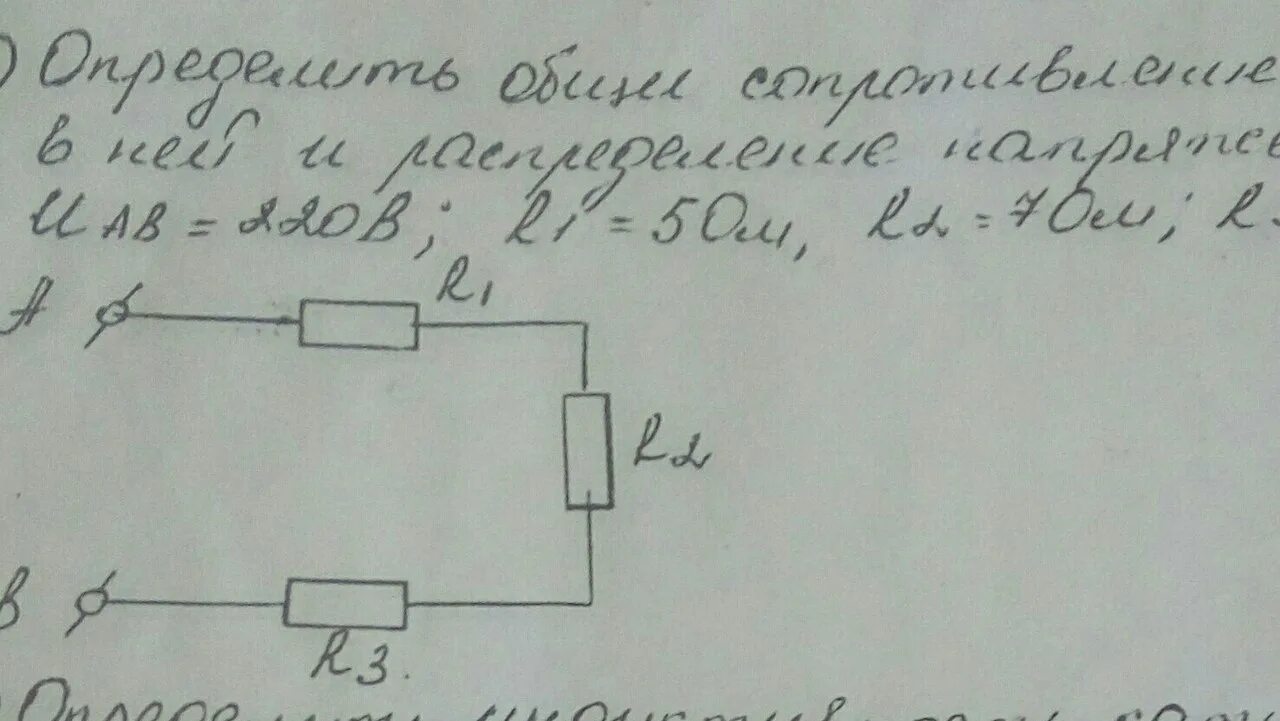 ) Определить общее сопротивление
в ней и распределение напряже
UАВ = 220В; R1 = 5Ом, R2 = 7Ом; R
А
R1
R2
В
R3.